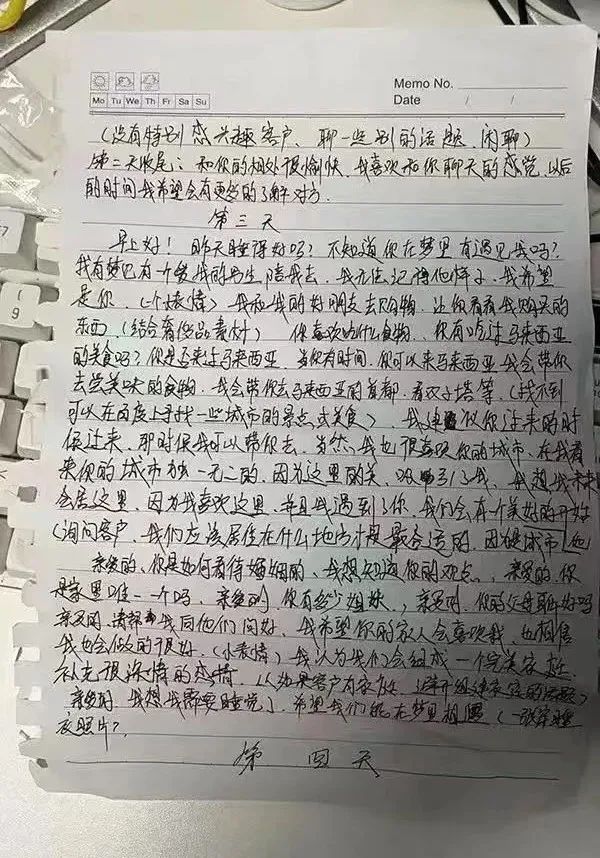 Memo No.
Mo Tu We Th Fr Sa Su
Date / /
(没有特别感兴趣客户、聊一些别的话题、闲聊)
第二天收尾：和你的相处很愉快、我喜欢和你聊天的感觉、以后
的时间我希望会有更多的了解对方.
第三天
早上好！昨天睡得好吗？不知道你在梦里有遇见我吗？
我有梦见有一个爱我的男生陪我去、我无法记得他样子、我希望
是你、(个表情) 我和我的好朋友去购物、让你看看我购买的
东西、(结合奢侈品素材) 你喜欢吃什么食物、你有吃过马来西亚
的美食吗？你是否来过马来西亚、当你有时间、你可以来马来西亚我会带你
去尝美味的食物、我会带你去马来西亚的首都、看双子塔等、(找不到
可以在百度上寻找一些城市的景点或美食)、我建议你过来的时
候过来、那时候我可以带你去、当然我也很喜欢你的城市、在我看
来你的城市独一无二的、因为这里的美、吸引了我、我想我未来
会居这里、因为我喜欢这里、并且我遇到了你、我们会有个美好的开始
(询问客户、我们应该居住在什么地方才是最合适的、因
亲爱的、你是如何看待婚姻的、我想知道你的观点、亲爱的、你
是家里唯一一个吗、亲爱的、你有多少姐妹、亲爱的、你的父母
亲爱的、请帮我同他们问好、我希望你的家人会喜欢我、也相信
我也会做的很好、(小表情) 我认为我们会组成一个完美家庭
补充很深情的感情、
亲爱的、我想我需要睡觉了、希望我们能在梦里相遇 (一张穿睡
衣照片？
第四天
F7
9